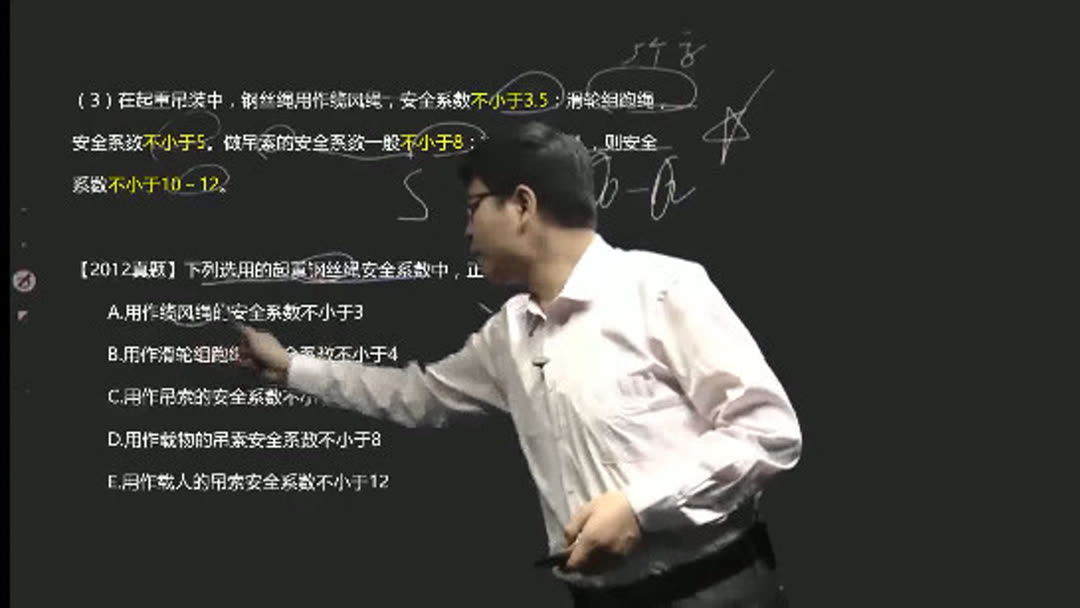 5个字
（3）在起重吊装中，钢丝绳用作缆风绳，安全系数不小于3.5；滑轮组跑绳，
安全系数不小于5。做吊索的安全系数一般不小于8；，则安全
系数不小于10－12。
【2012真题】下列选用的起重钢丝绳安全系数中，正
A.用作缆风绳的安全系数不小于3
B.用作滑轮组跑绳全系数不小于4
C.用作吊索的安全系数不小
D.用作载物的吊索安全系数不小于8
E.用作载人的吊索安全系数不小于12